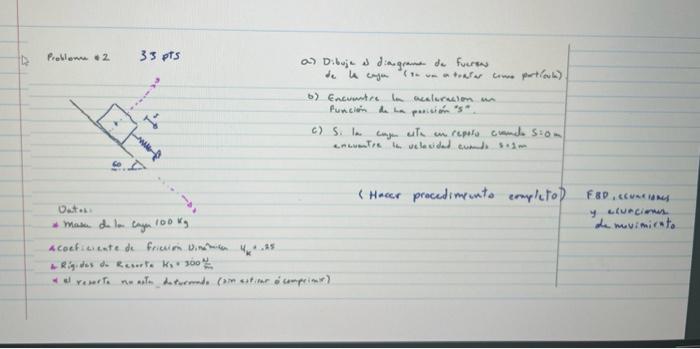 Problema #2 33 pts
a) Dibuje el diagrama de fuerzas
de la caja (se va a tratar como partícula).
b) Encuentre la aceleracion en
función de la posición "s".
c) Si la caja esta en reposo cuando S=0m
encuentre la velocidad cuando s=1m
60
(Hacer procedimiento completo)
FBD, ecuaciones
y ecuaciones
de movimiento
Datos:
* Masa de la caja 100 Kg
* Coeficiente de fricción Dinámica μk = .25
* Rigidez de Resorte Ks = 300 N/m
* el resorte no esta deformado (sin estirar ó comprimir)